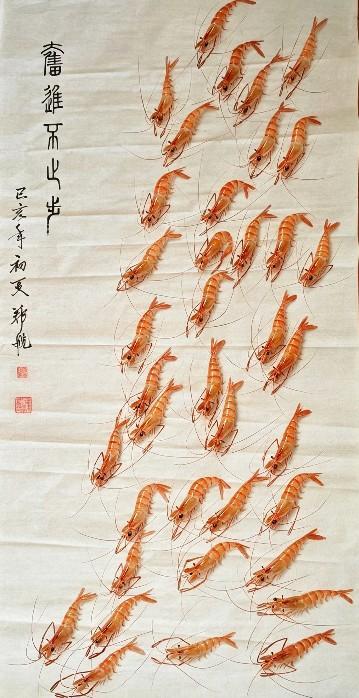 奮進不止步
己亥年初夏